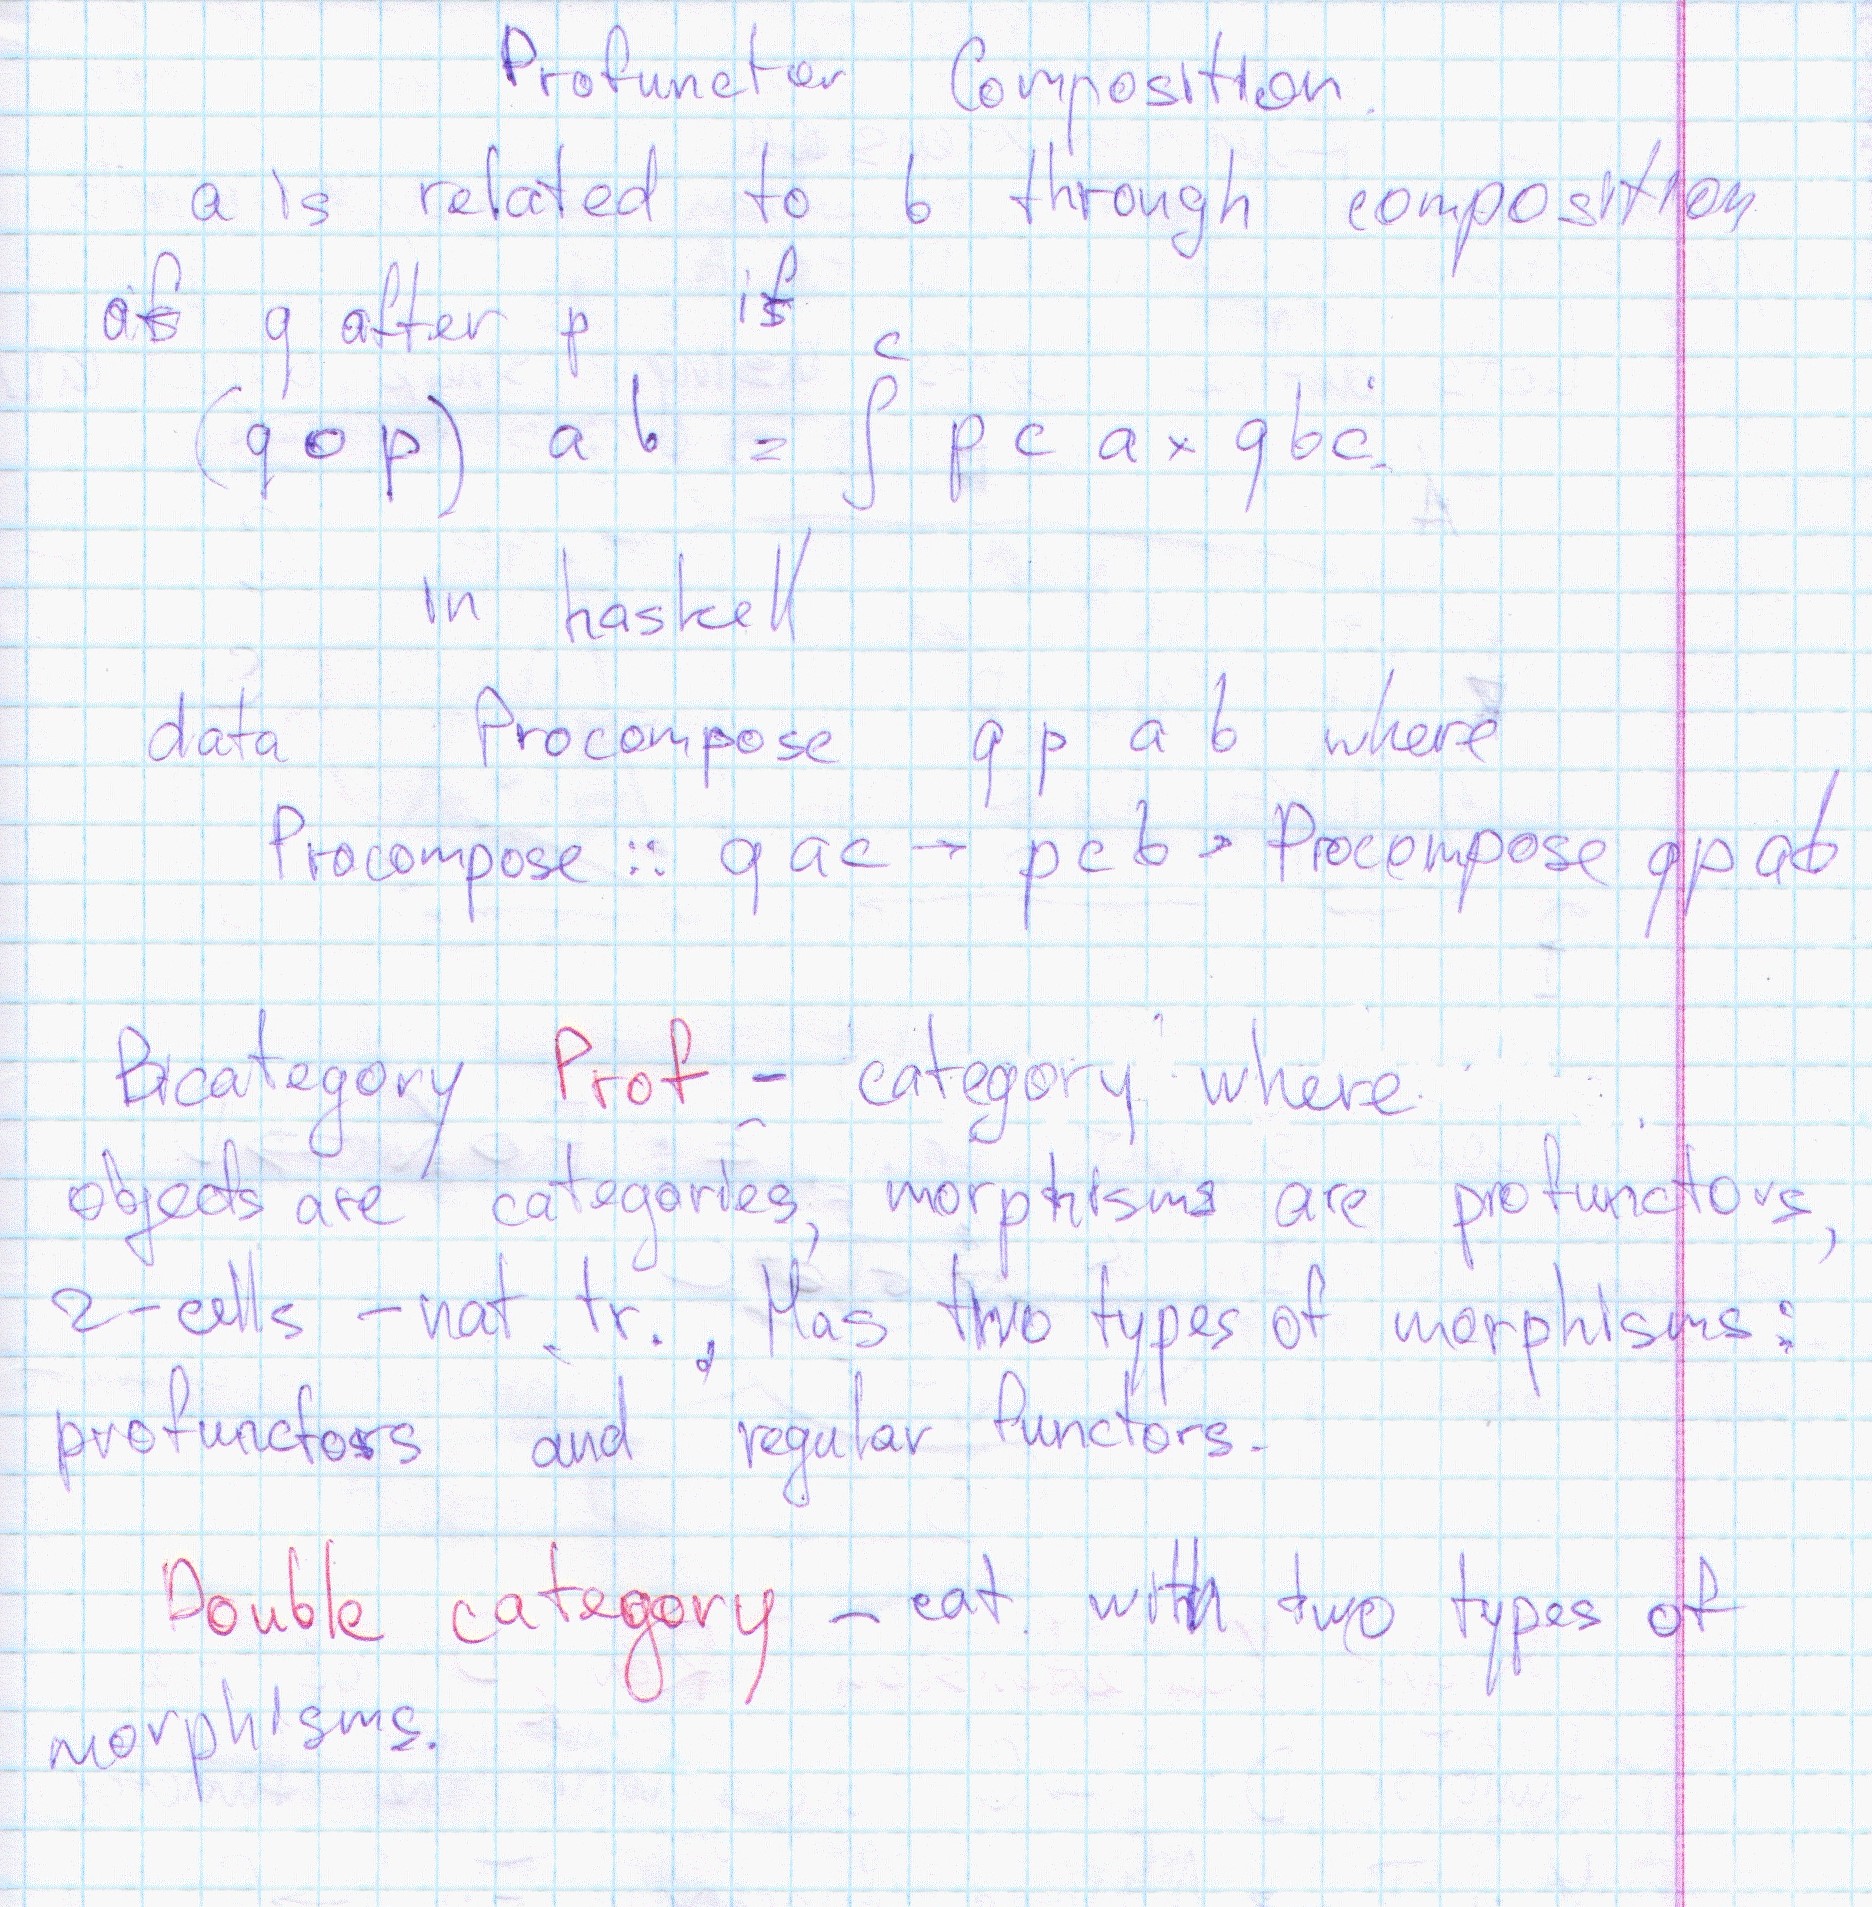 Profunctor Composition.
a is related to b through composition
of q after p if
(q ∘ p) a b = ∫^c p c a × q b c.
in haskell
data Procompose q p a b where
Procompose :: q a c → p c b → Procompose q p a b
Bicategory Prof - category where
objects are categories, morphisms are profunctors,
2-cells - nat. tr.. Has two types of morphisms:
profunctors and regular functors.
Double category - cat. with two types of
morphisms.